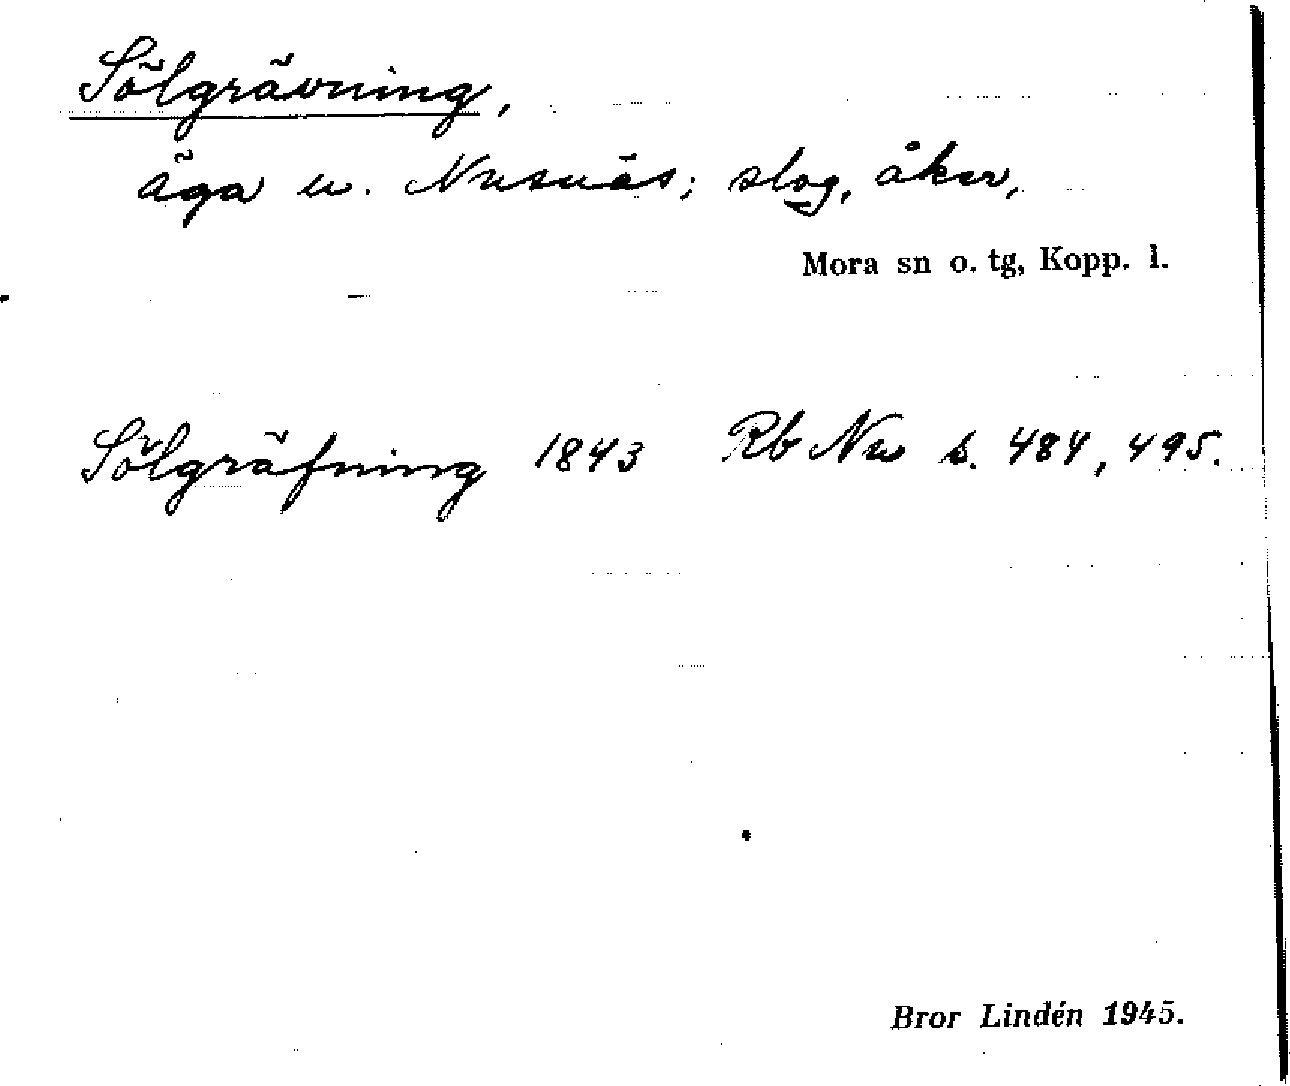 Sölgrävning,
äga u. Nusnäs; slog, åker,
Mora sn o. tg, Kopp. l.
Sölgräfning 1843 Rb Nu s. 484, 495.
Bror Lindén 1945.